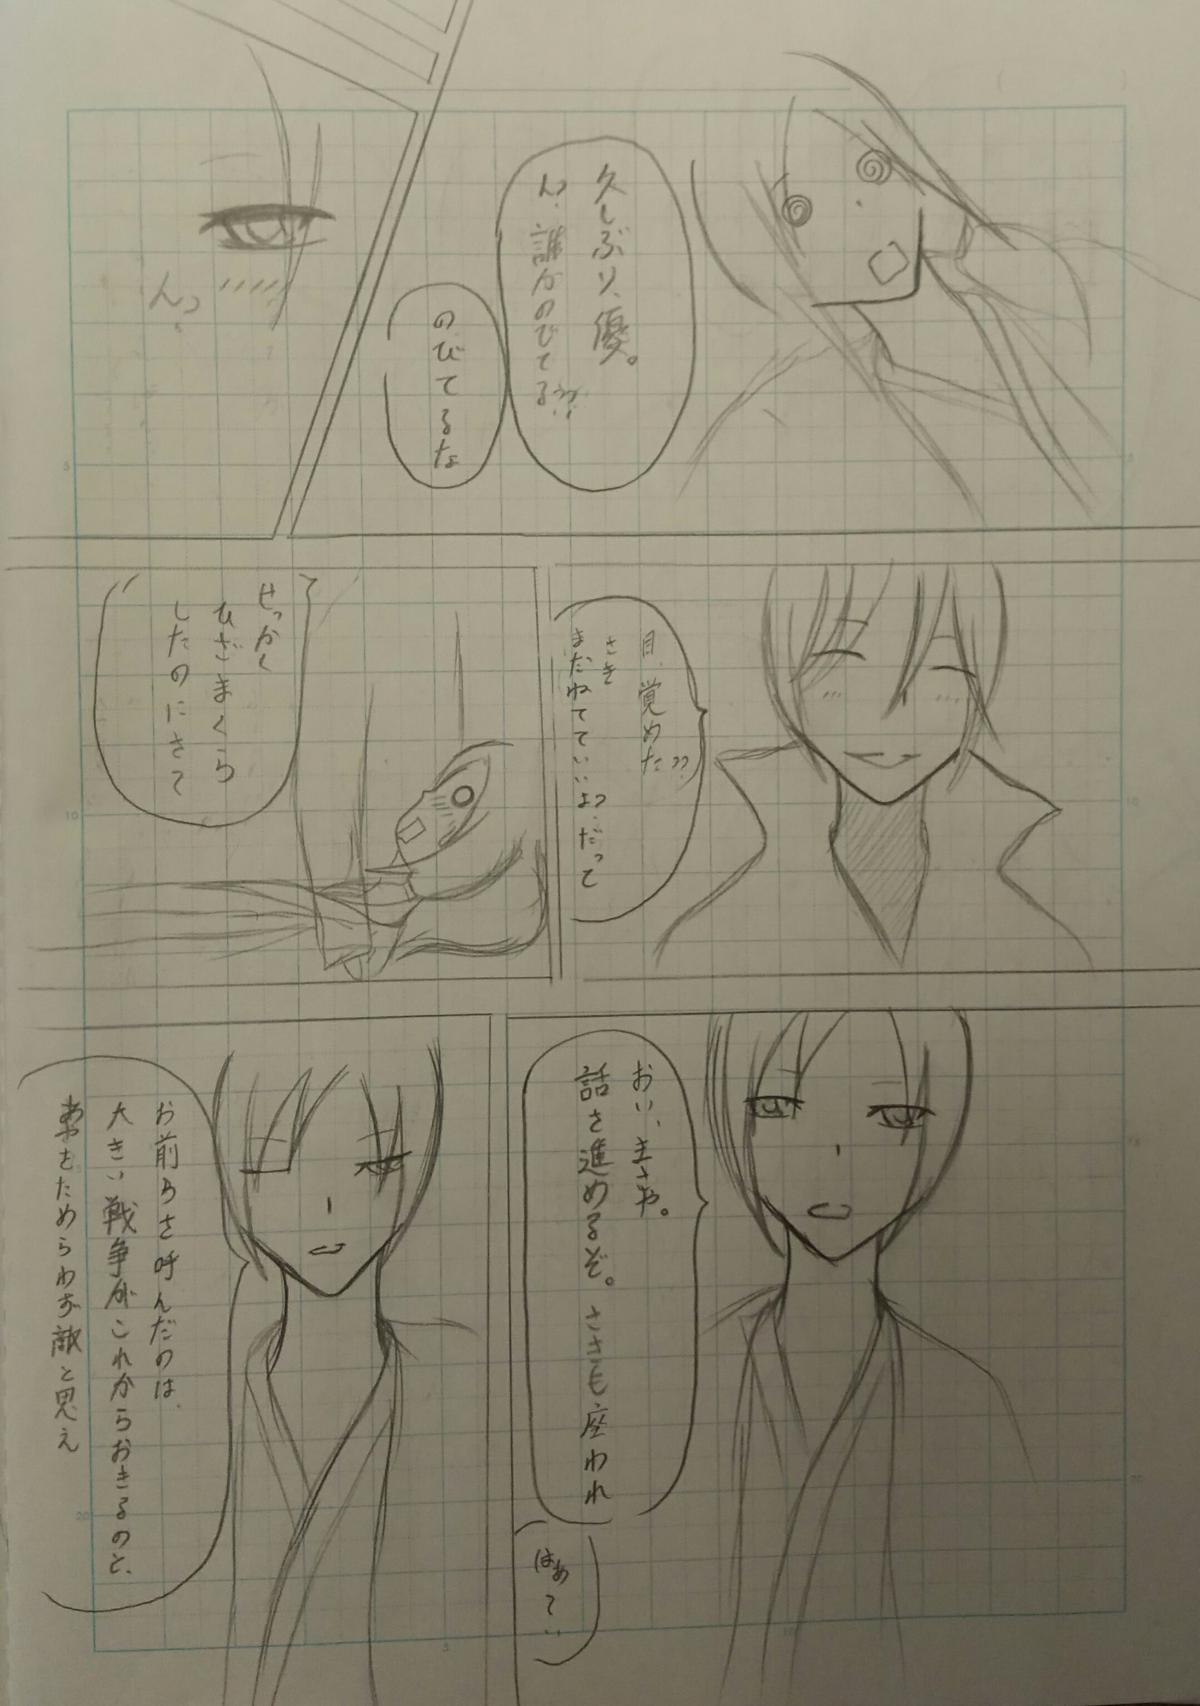 久しぶり、優。
んっ、誰かのびてる
のびてるな
んっ
目、覚めた??
さき
まだねてていいよっ、だって
せっかく
ひざまくら
したのにさて
おい、
話さ進めるぞ。ささも座われ
はぁて
お前らさ呼んだのは、
大きい戦争がこれからおきるのと、
をためらわず敵と思え